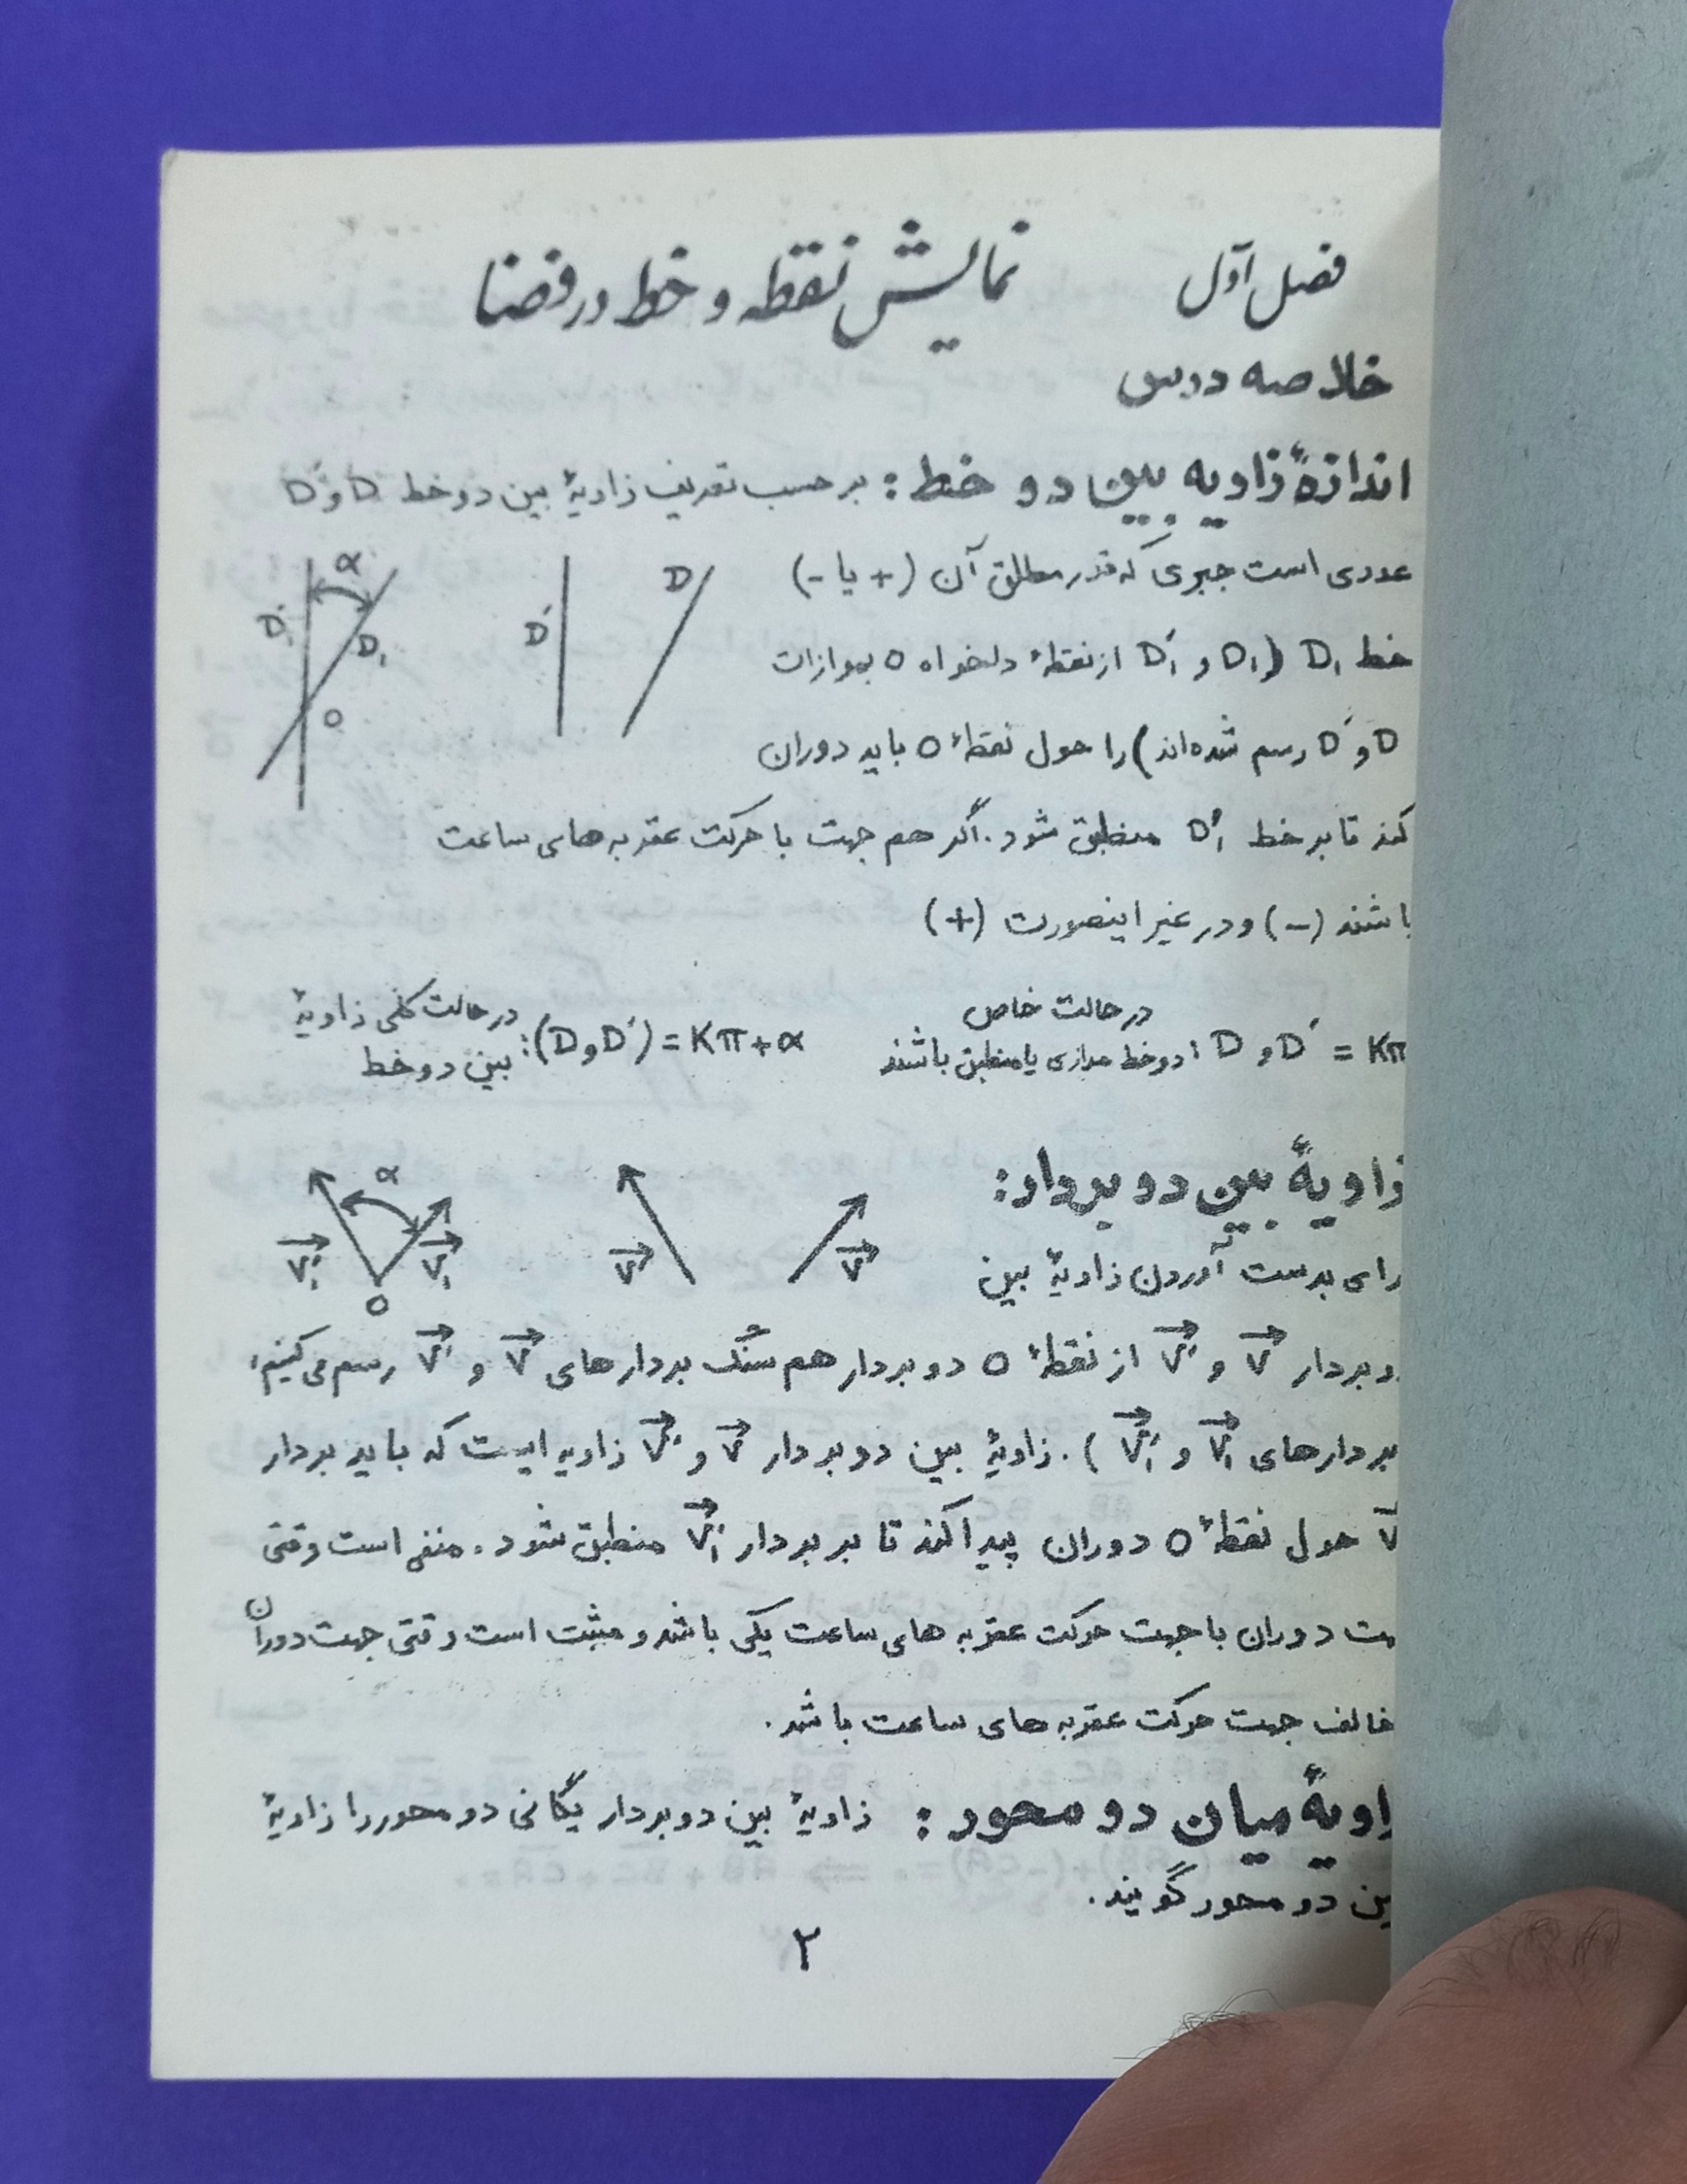 فصل اول نمایش نقطه و خط در فضا
خلاصه درس
اندازهٔ زاویه بین دو خط: بر حسب تعریف زاویهٔ بین دو خط D و D′
عددی است جبری که قدر مطلق آن (+ یا -)
خط D₁ (D₁ و D′₁ از نقطهٔ دلخواه O بموازات
D و D′ رسم شده‌اند) را حول نقطهٔ O باید دوران
کند تا بر خط D′₁ منطبق شود. اگر هم جهت با حرکت عقربه‌های ساعت
باشند (-) و در غیر اینصورت (+)
D و D′ = Kπ : دو خط موازی یا منطبق باشند در حالت خاص
(D و D′) = Kπ + α : در حالت کلی زاویهٔ بین دو خط
D′₁ α D₁ O
D′ D
زاویهٔ بین دو بردار:
V⃗′₁ α V⃗₁ O
V⃗′ V⃗
رای بدست آوردن زاویهٔ بین
و بردار V⃗ و V⃗′ از نقطهٔ O دو بردار هم سنگ بردارهای V⃗ و V⃗′ رسم می‌کنیم،
بردارهای V⃗₁ و V⃗′₁ ). زاویهٔ بین دو بردار V⃗ و V⃗′ زاویه ایست که باید بردار
V⃗ حول نقطهٔ O دوران پیدا کند تا بر بردار V⃗′₁ منطبق شود. منفی است وقتی
ت دوران با جهت حرکت عقربه های ساعت یکی باشد و مثبت است وقتی جهت دوران
خالف جهت حرکت عقربه های ساعت باشد.
اویهٔ میان دو محور: زاویهٔ بین دو بردار یگانی دو محور را زاویهٔ
ین دو محور گویند.
۲